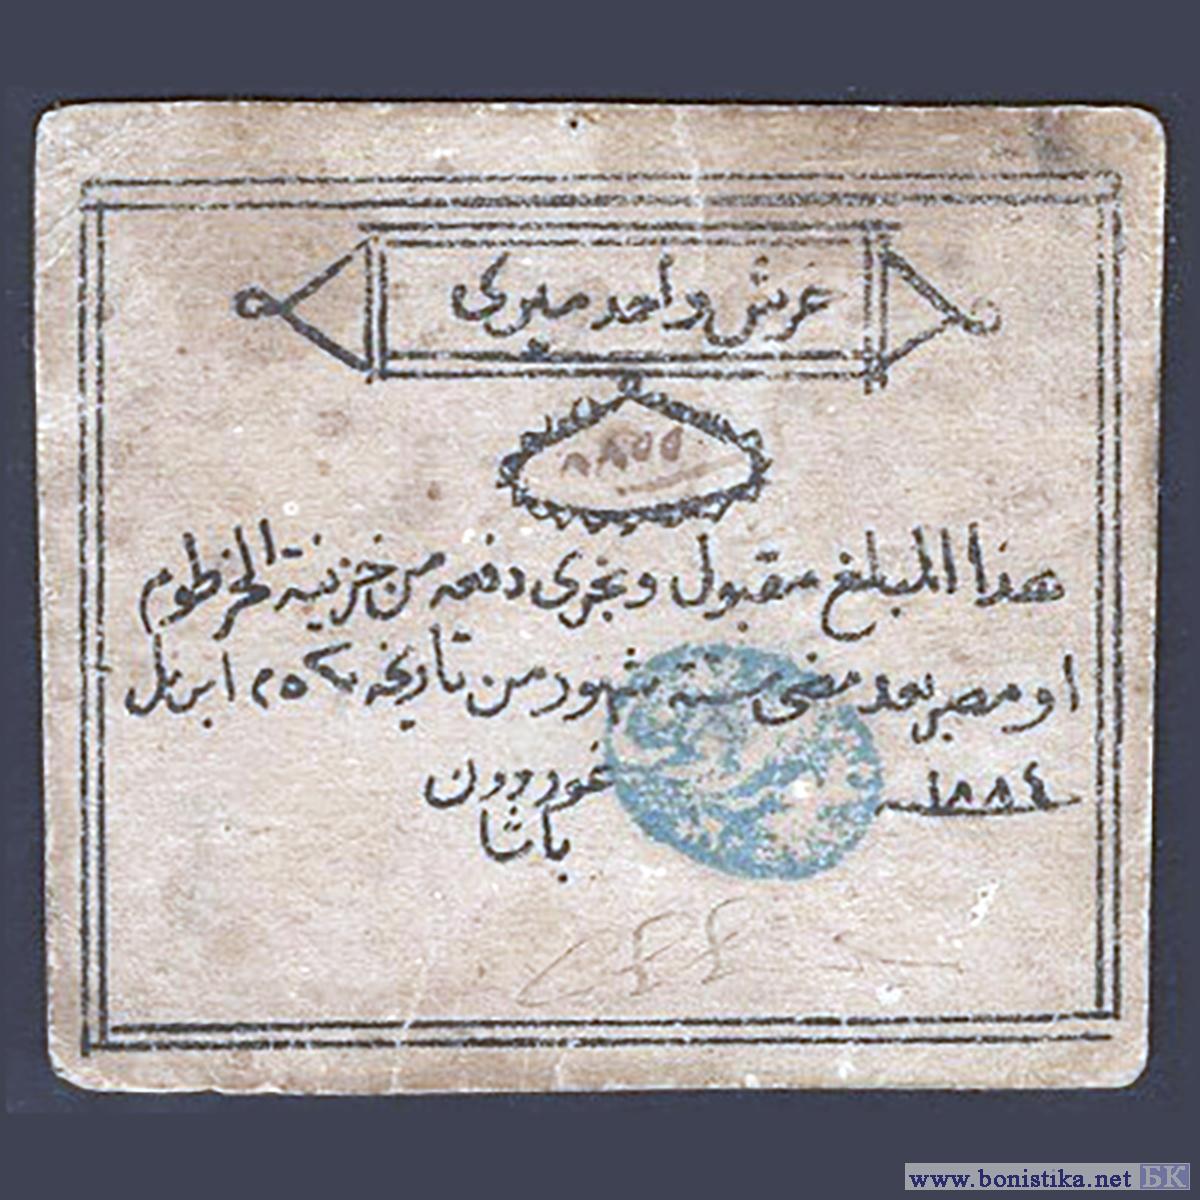 غرش واحد ميرى
٨٨٥٥
هذا المبلغ مقبول وبجرى دفعه من خزينة الخرطوم
او مصر بعد مضى ستة شهور من تاريخه ٢٥ ابريل
١٨٨٤
غوردون
باشا
www.bonistika.net БК